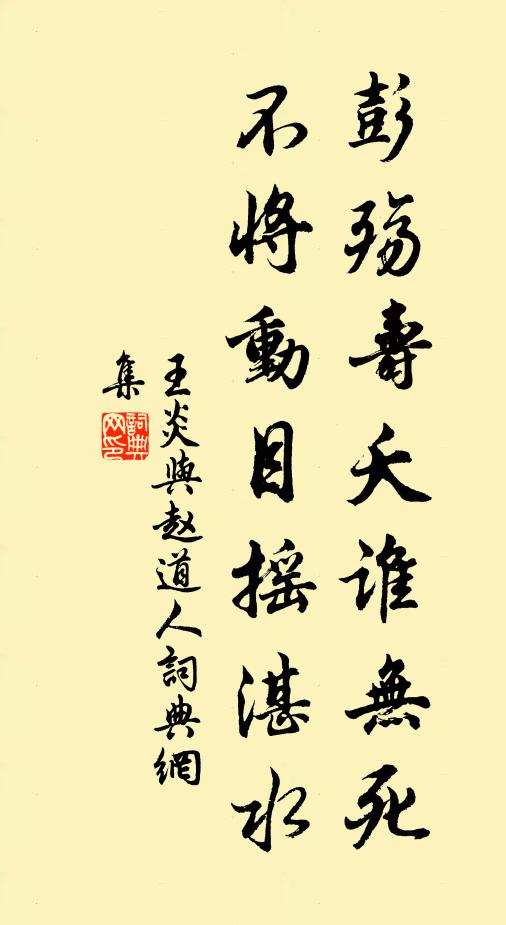 彭殤壽夭誰無死
不將動目搖湛水
王炎與趙道人詞典網
集
詞典
网印